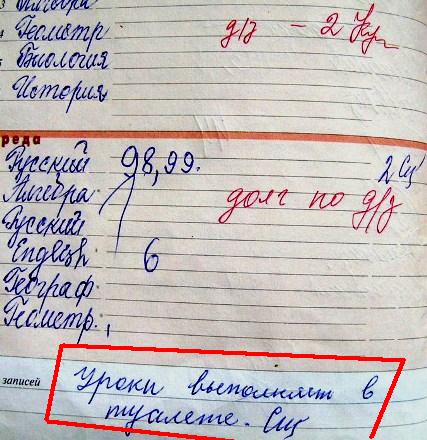 Алгебра
Геометр
Биология
История
д/з - 2
реда
Русский 98,99. 2
Алгебра
Русский долг по д/з
English 6
Географ
Геометр.
записей
Уроки выполняет в
туалете. Сщ